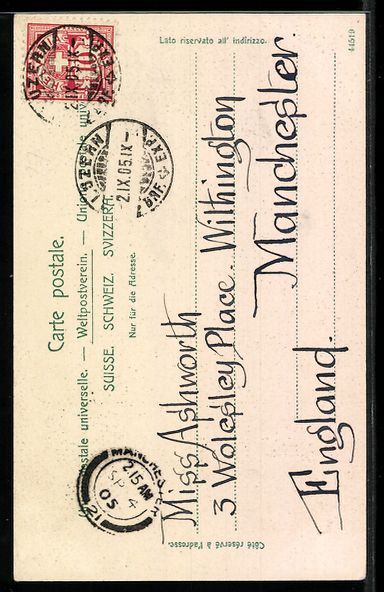 Carte postale.
Union postale universelle. — Weltpostverein. — Unione postale universale.
SUISSE. SCHWEIZ. SVIZZERA.
Nur für die Adresse.
Lato riservato all' indirizzo.
44519
Côté réservé à l'adresse.
10
LUZERN
2.IX.05.IX-
BRF. EXP.
LUZERN
2.IX.05.IX-
BRF. EXP.
MANCHESTER
2.15 AM
SP 4
05
12
Miss Ashworth
3 Wolesley Place. Withington
Manchester.
England.